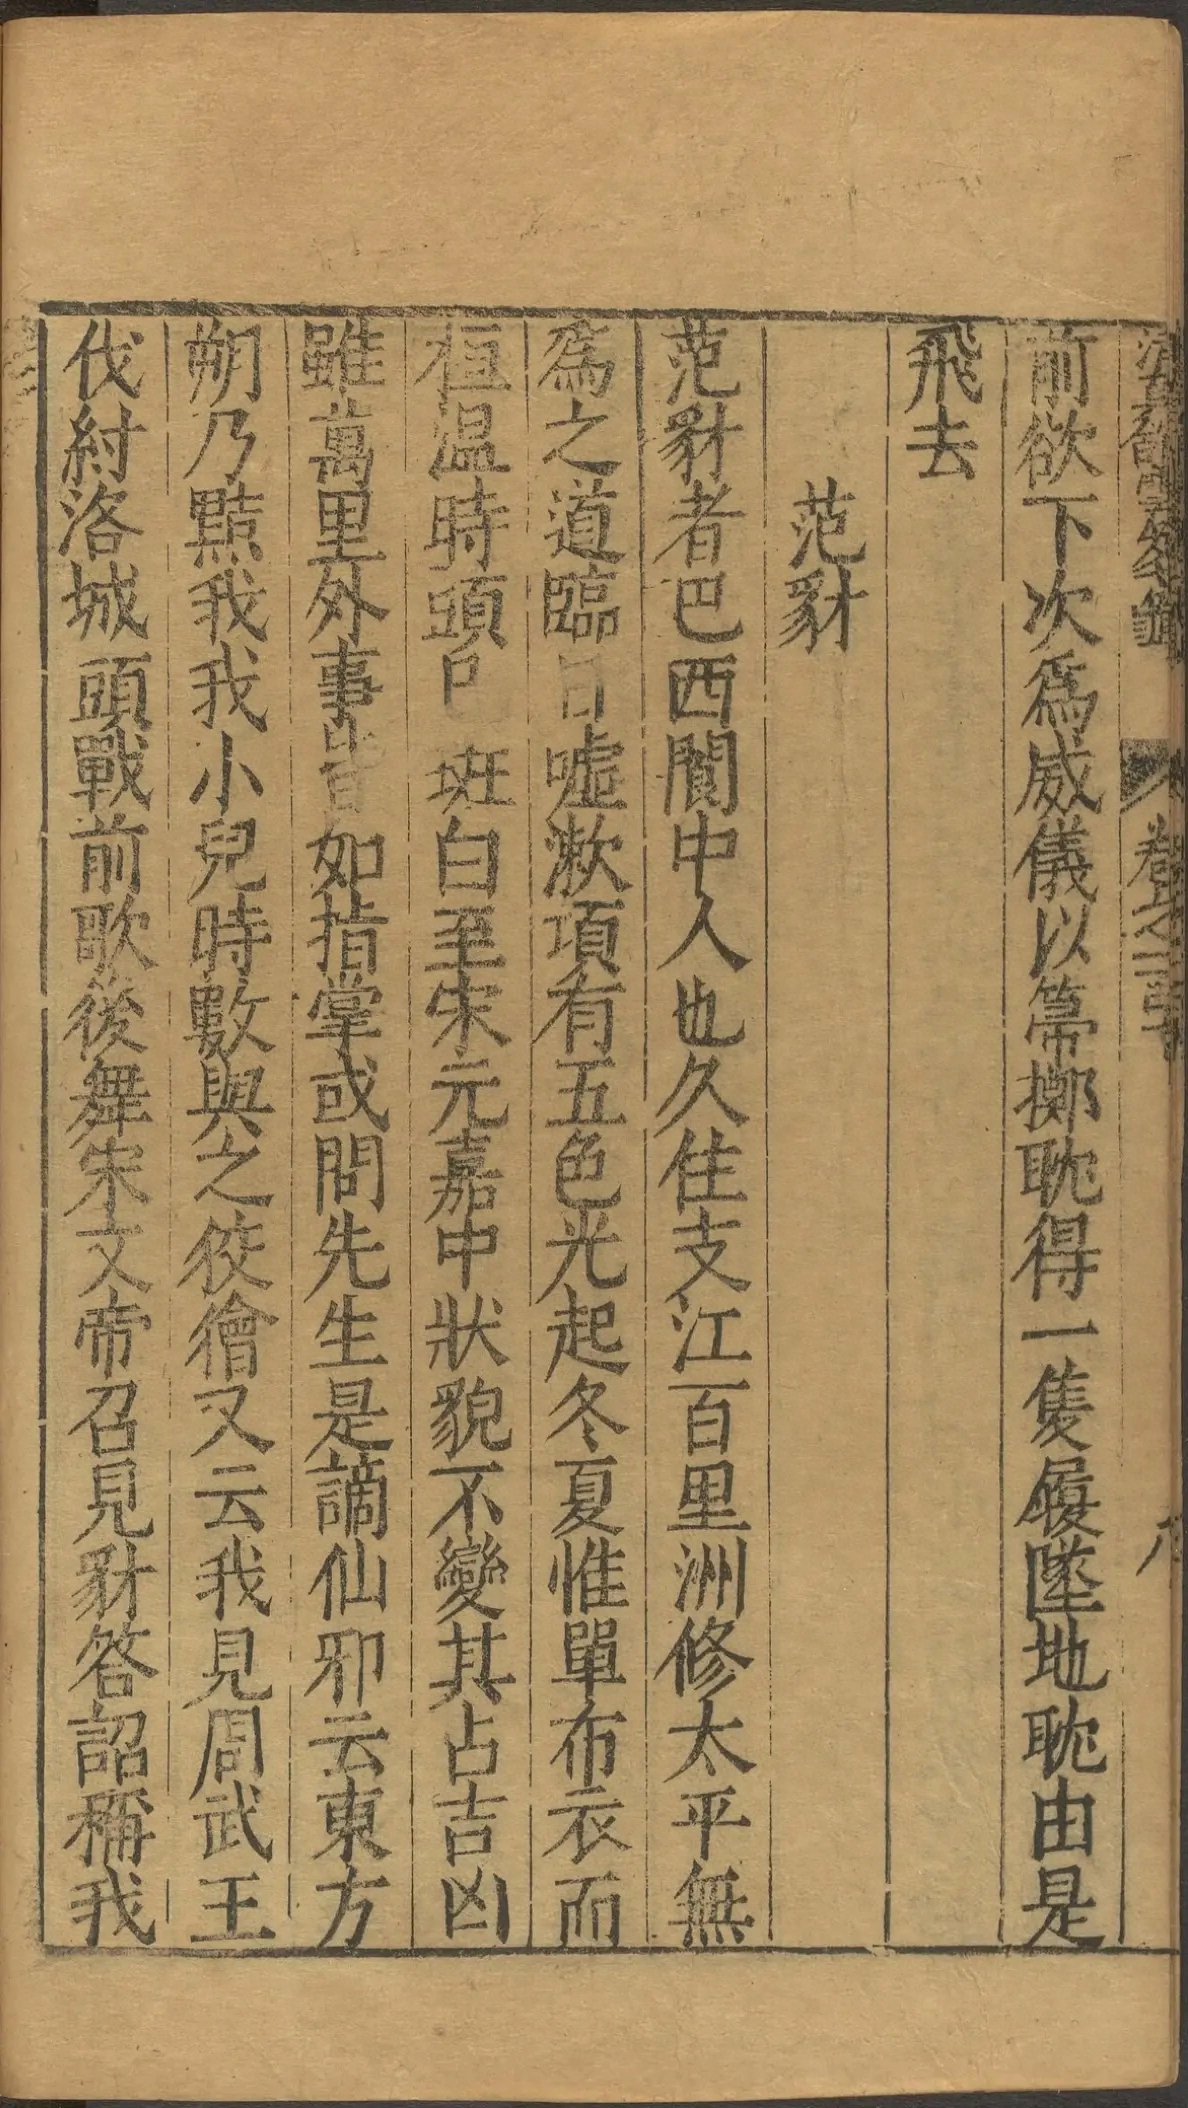 卷之二
前欲下次爲威儀以箒擲耽得一隻履墜地耽由是
飛去
范豺
范豺者巴西閬中人也久住支江百里洲修太平無
爲之道臨日噓漱項有五色光起冬夏惟單布衣而
桓温時頭已斑白至宋元嘉中狀貌不變其占吉凶
雖萬里外事皆如指掌或問先生是謫仙邪云東方
朔乃黠我我小兒時數與之狡獪又云我見周武王
伐紂洛城頭戰前歌後舞宋文帝召見豺答詔稱我